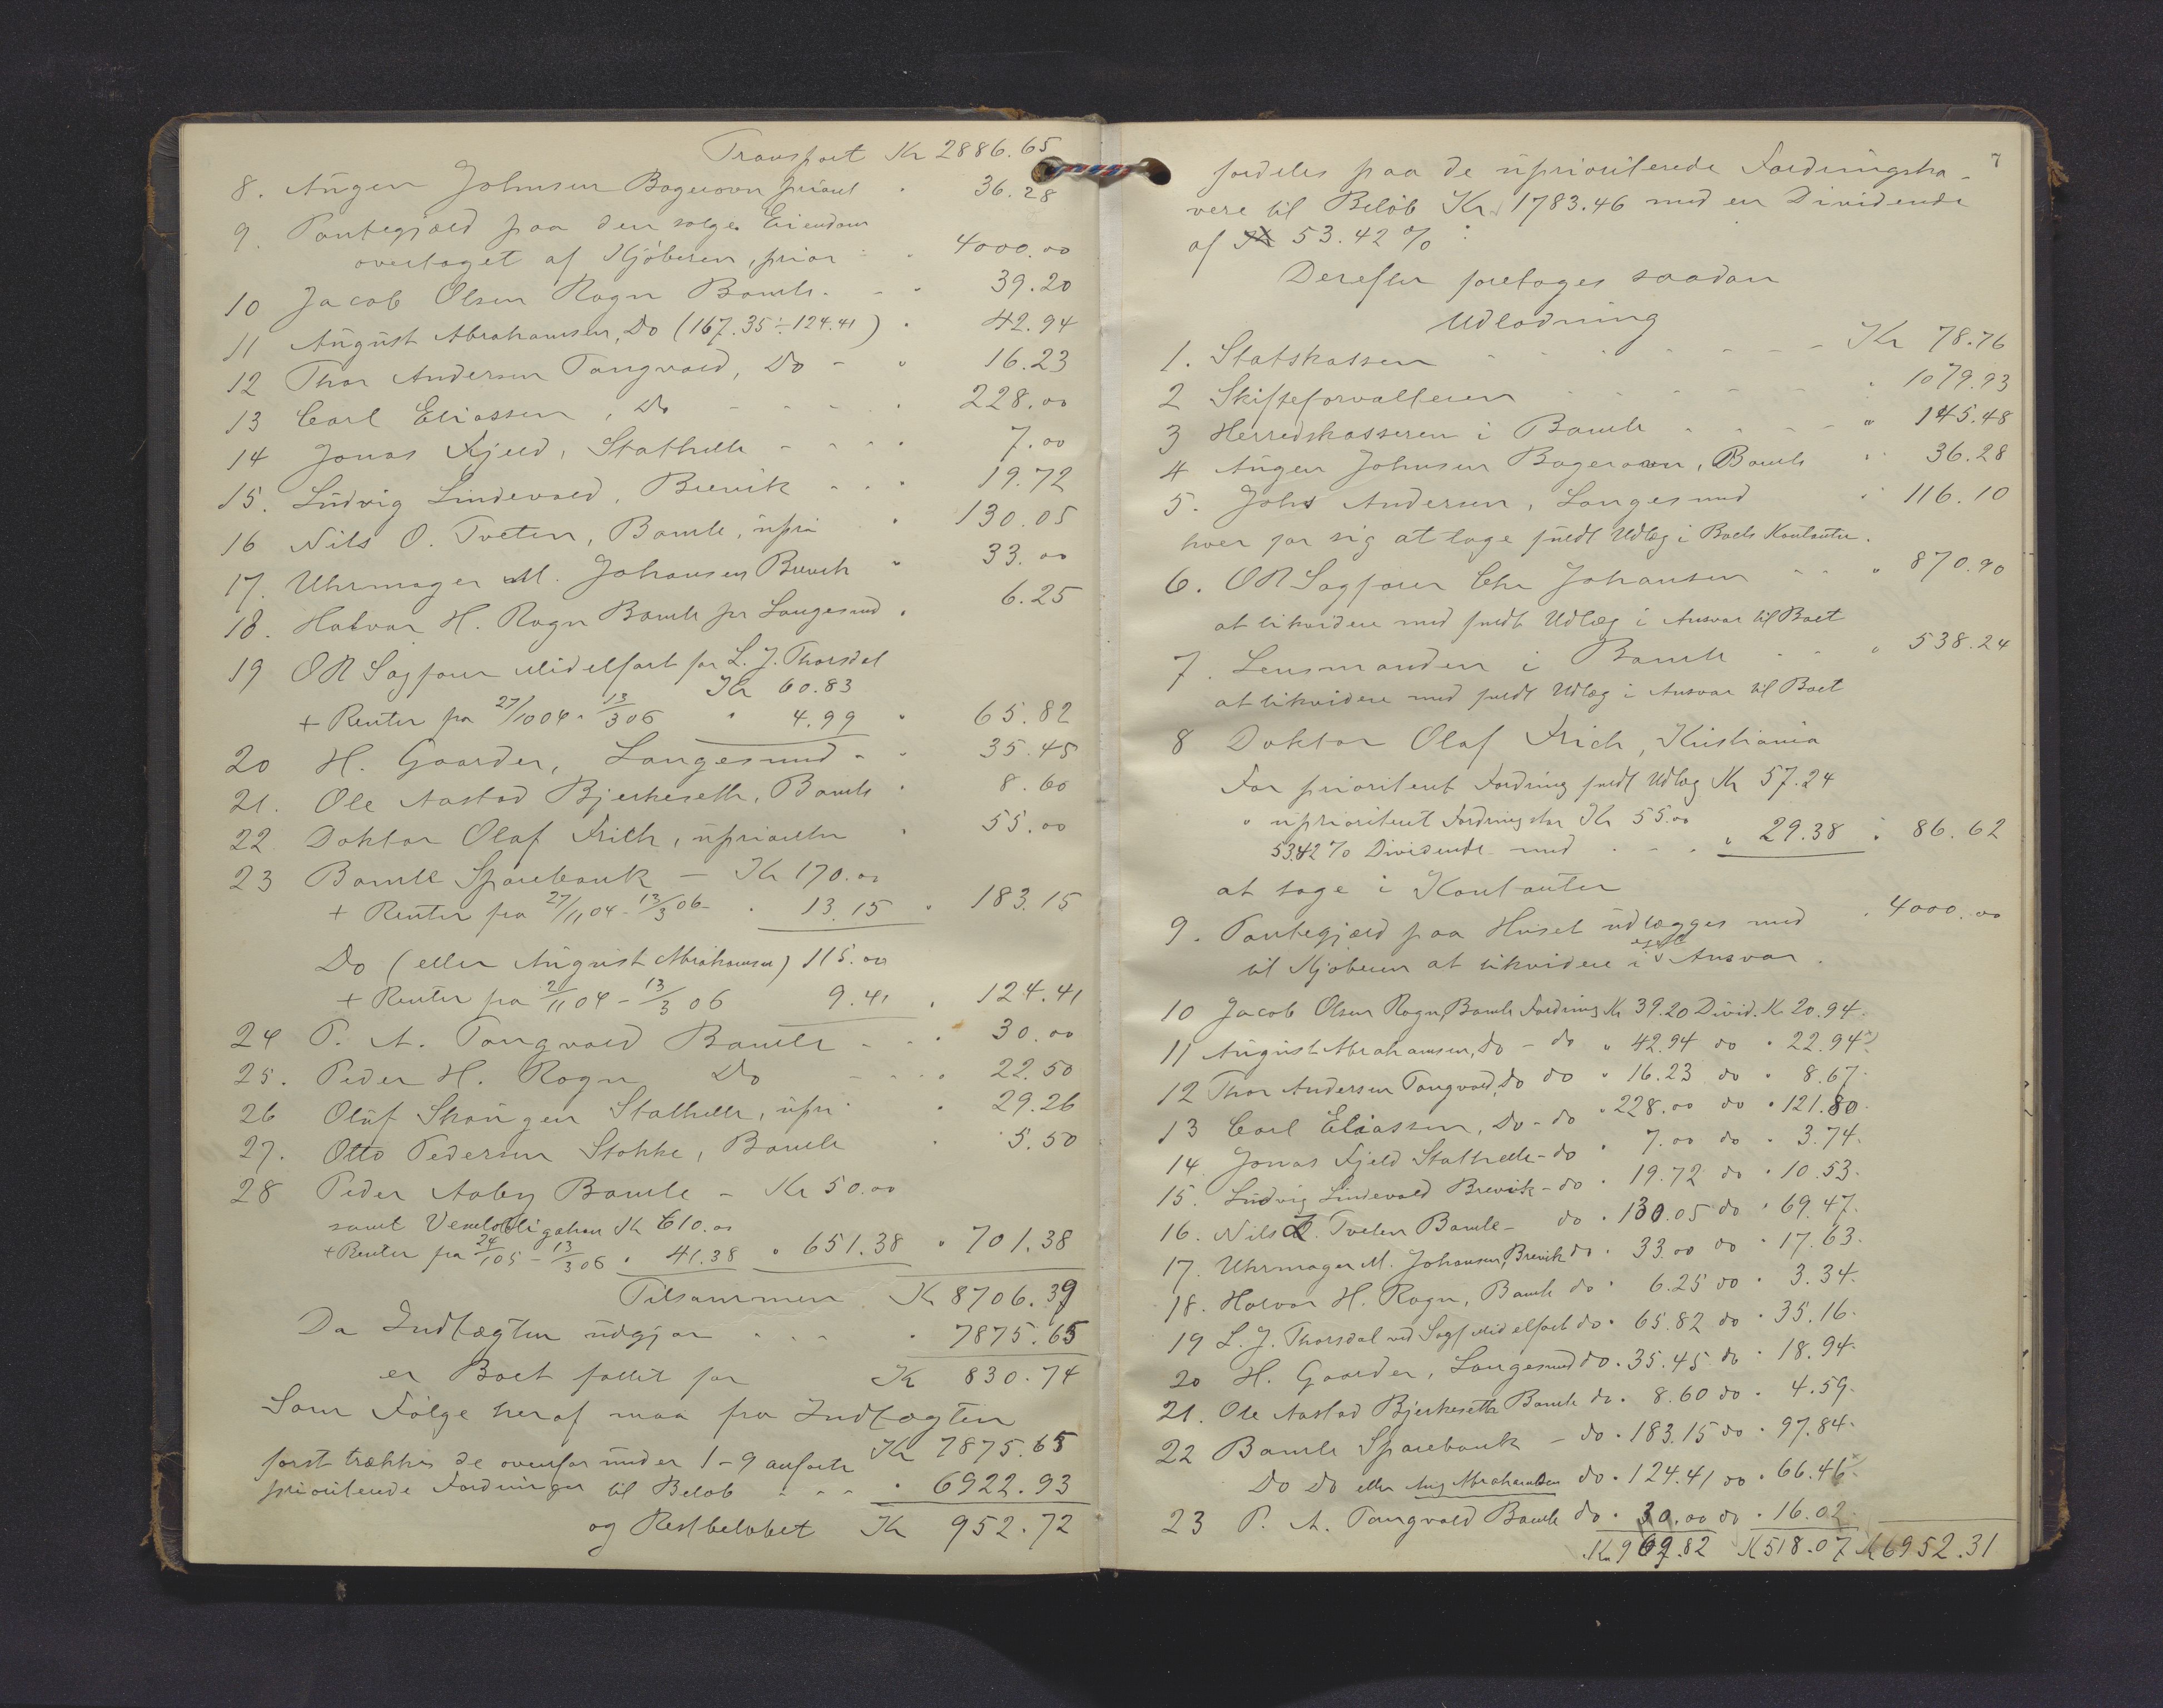 Transport Kr 2886.65
8. Aügen Johnsen Bagerovn priorit " 36.28
9. Pantegjæld paa den solge Eiendom
overtaget af Kjöberen, prior " 4000.00
10 Jacob Olsen Rogn Bamle. - " 39.20
11 Aügüst Abrahamsen, Do (167.35 ÷ 124.41) " 42.94
12 Thor Andersen Tangvald, Do - " 16.23
13 Carl Eliassen, Do - - - " 228.00
14 Jonas Fjeld, Stathelle - - - " 7.00
15. Lüdvig Lindevald, Brevik - - " 19.72
16 Nils O. Tveten, Bamle, üpri " 130.05
17. Uhrmager M. Johansen Brevik " 33.00
18. Halvor H. Rogn Bamle pr Langesund " 6.25
19 OR Sagfører Midelfart for L. J. Thorsdal
Kr 60.83
+ Renter fra 27/10 04 - 13/3 06 " 4.99 " 65.82
20 H. Gaarder, Langesund - " 35.45
21. Ole Aastad Bjerkeseth, Bamle " 8.60
22. Doktor Olaf Frich, üprioritr " 55.00
23 Bamle Sparebank - Kr 170.00
+ Renter fra 27/11 04 - 13/3 06 - " 13.15 " 183.15
Do (eller Aügüst Abrahamsen) 115.00
+ Renter fra 2/11 04 - 13/3 06 9.41 " 124.41
24 P. A. Tangvald Bamle - - " 30.00
25. Peder H. Rogn Do - - - " 22.50
26 Olüf Skaugen Stathelle, üpr. " 29.26
27. Otto Pedersen Stokke, Bamle " 5.50
28 Peder Aaby Bamle - Kr 50.00
samt Vexelobligation Kr 610.00
+ Renter fra 24/1 05 - 13/3 06 " 41.38 " 651.38 " 701.38
Tilsammen Kr 8706.39
Da Indtægten üdgjør - - - " 7875.65
er Boet fallit for Kr 830.74
Som Følge heraf maa fra Indtægten Kr 7875.65
først trækkes de ovenfor ünder 1-9 anførte
prioriterede Fordringer til Beløb - - - " 6922.93
og Restbeløbet Kr 952.72
7
fordeles paa de üprioriterede Fordringsha-
vere til Beløb Kr. 1783.46 med en Dividende
af 53.42 % :
Derefter foretages saadan
Udlodning
1. Statskassen - - - - - - Kr 78.76
2 Skifteforvalteren - - - - - " 1079.93
3 Herredskasseren i Bamle - - - - " 145.48
4 Aügen Johnsen Bagerovn, Bamle " 36.28
5. Johs Andersen, Langesund " 116.10
hver for sig at tage füldt Udlæg i Boets Kontanter.
6. OR Sagfører Chr Johansen - - " 870.90
at likvidere med füldt Udlæg i Ansvar til Boet
7. Lensmanden i Bamle - - " 538.24
at likvidere med füldt Udlæg i Ansvar til Boet
8 Doktor Olaf Frich, Kristiania
For prioritert Fordring füldt Udlæg Kr 57.24
" üprioritert Fordring stor Kr 55.00
53.42 % Dividende med - - - " 29.38 " 86.62
at tage i Kontanter
9. Pantegjæld paa Hüset üdlægges med " 4000.00
til Kjøberen at likvidere i eget Ansvar.
10 Jacob Olsen Rogn, Bamle Fordring Kr 39.20 Divid. Kr 20.94.
11 Aügüst Abrahamsen, do - do " 42.94 do " 22.94
12 Thor Andersen Tangvald, do do " 16.23 do " 8.67.
13 Carl Eliassen, Do - do " 228.00 do " 121.80.
14. Jonas Fjeld Stathelle - do " 7.00 do " 3.74.
15. Lüdvig Lindevald Brevik - do " 19.72 do " 10.53.
16. Nils O. Tveten Bamle - do " 130.05 do " 69.47.
17. Uhrmager M. Johansen, Brevik do " 33.00 do " 17.63.
18. Halvor H. Rogn, Bamle do " 6.25 do " 3.34.
19 L. J. Thorsdal ved Sagf Midelfart do " 65.82 do " 35.16.
20 H. Gaarder, Langesund do " 35.45 do " 18.94.
21. Ole Aastad Bjerkeseth Bamle do " 8.60 do " 4.59.
22 Bamle Sparebank - do " 183.15 do " 97.84.
Do Do eller Aug Abrahamsen do " 124.41 do " 66.46.
23 P. A. Tangvald Bamle do " 30.00 do " 16.02
Kr 969.82 Kr 518.07 Kr 6952.31